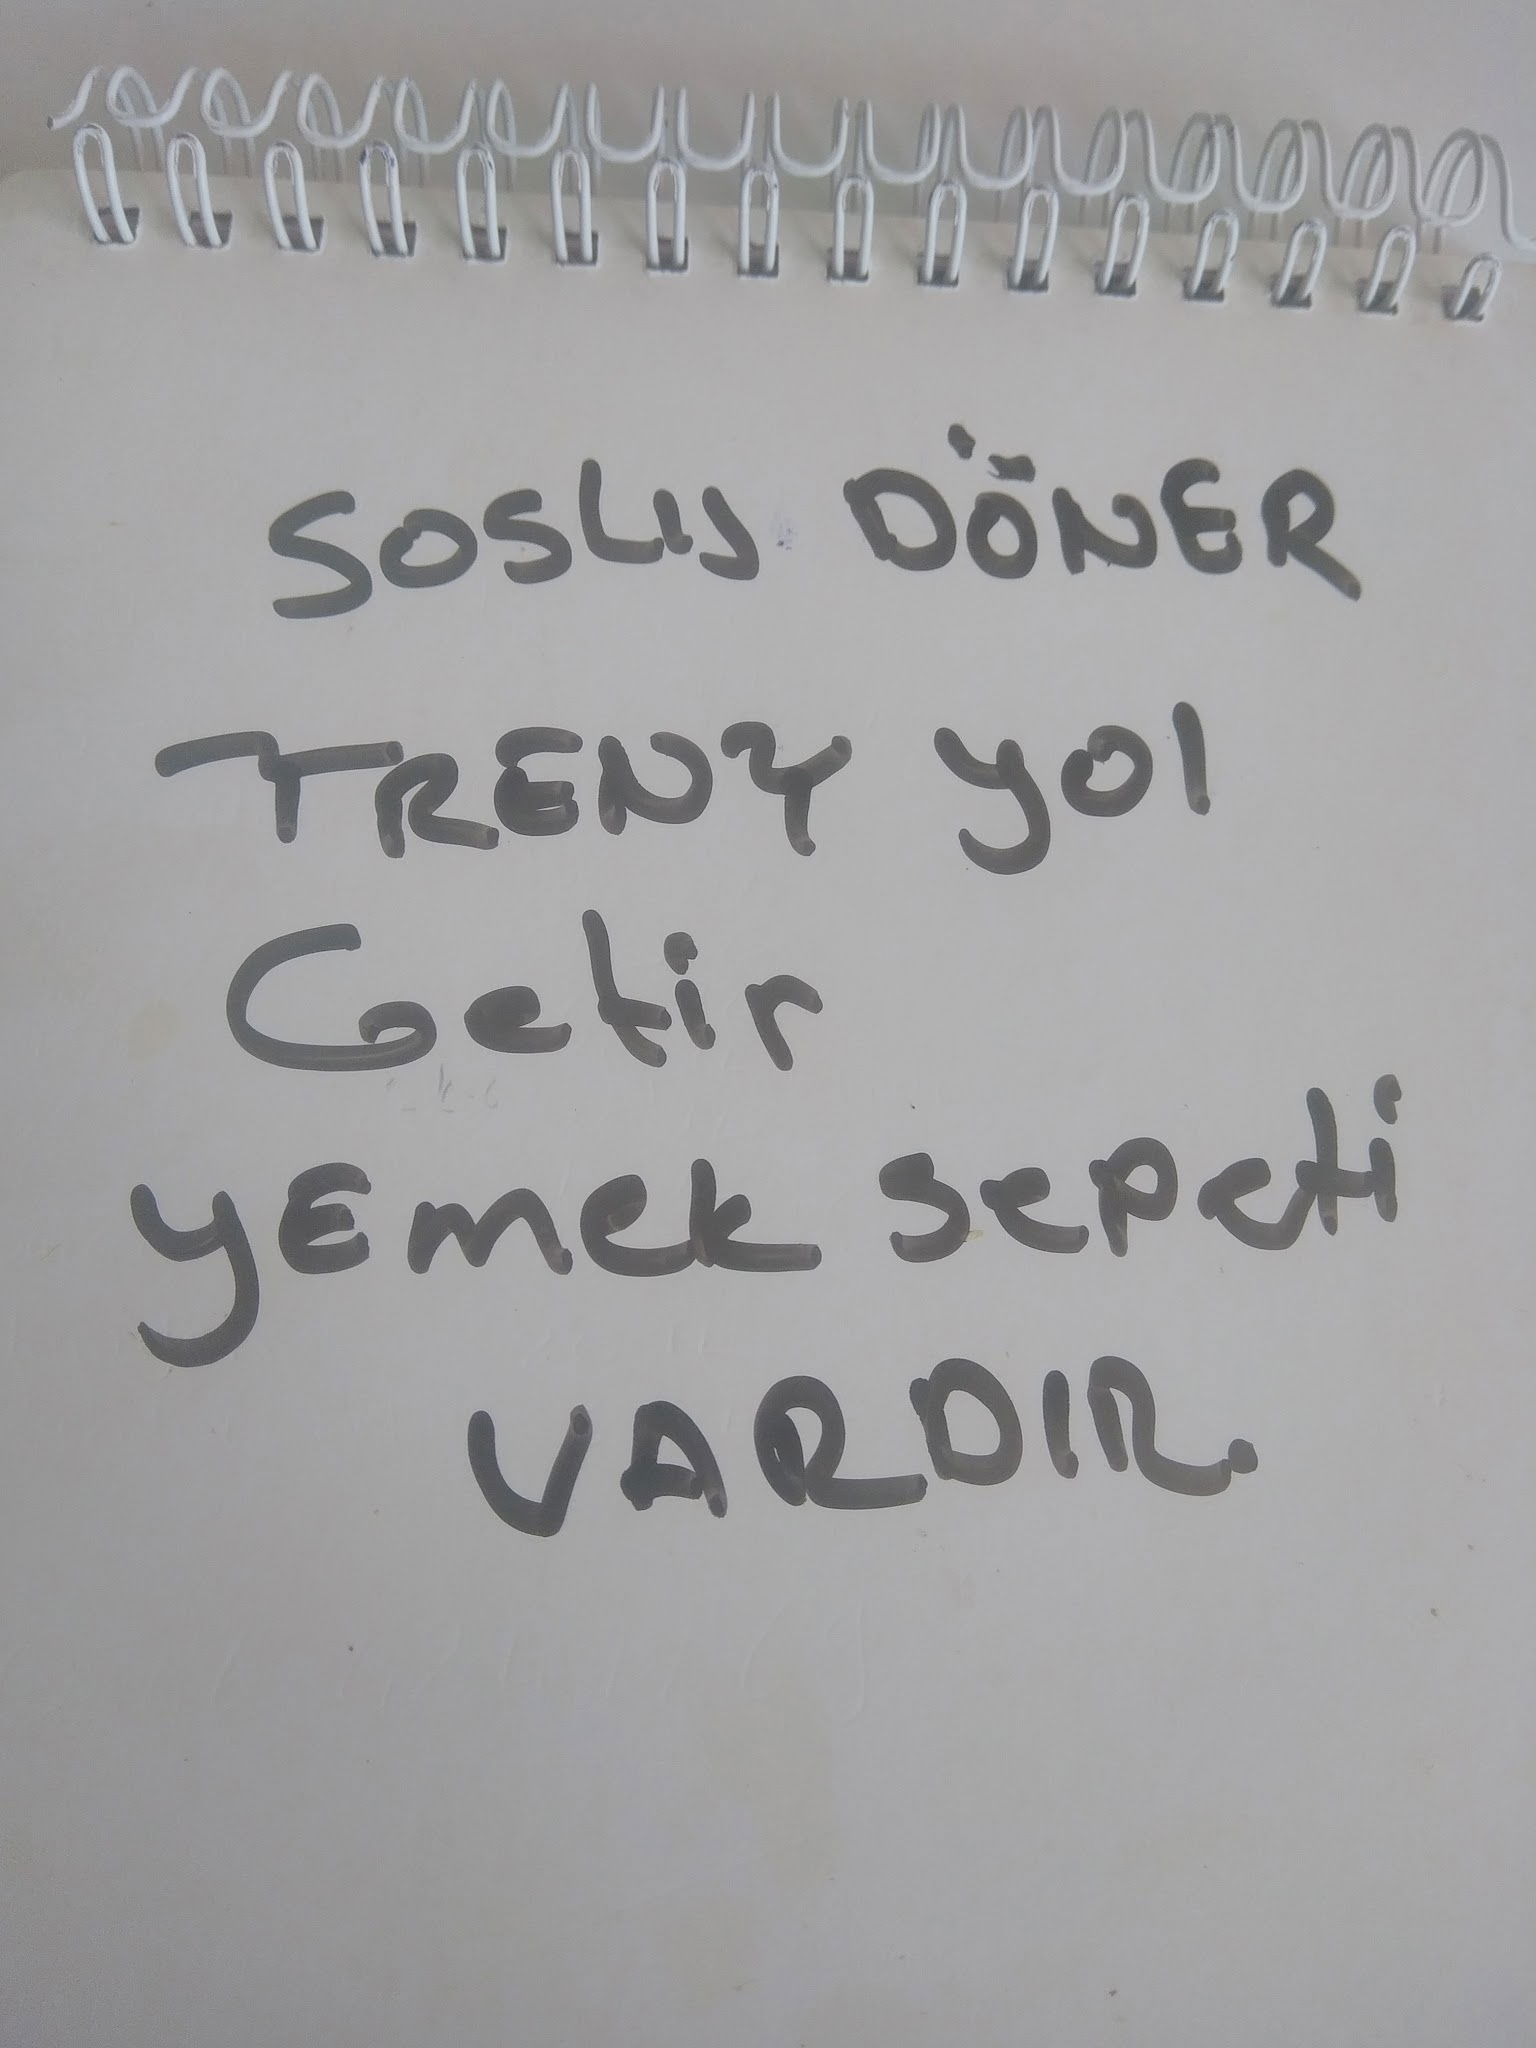 SOSLU DÖNER
TRENY YOl
Getir
YEmek sepeti
VARDIR.